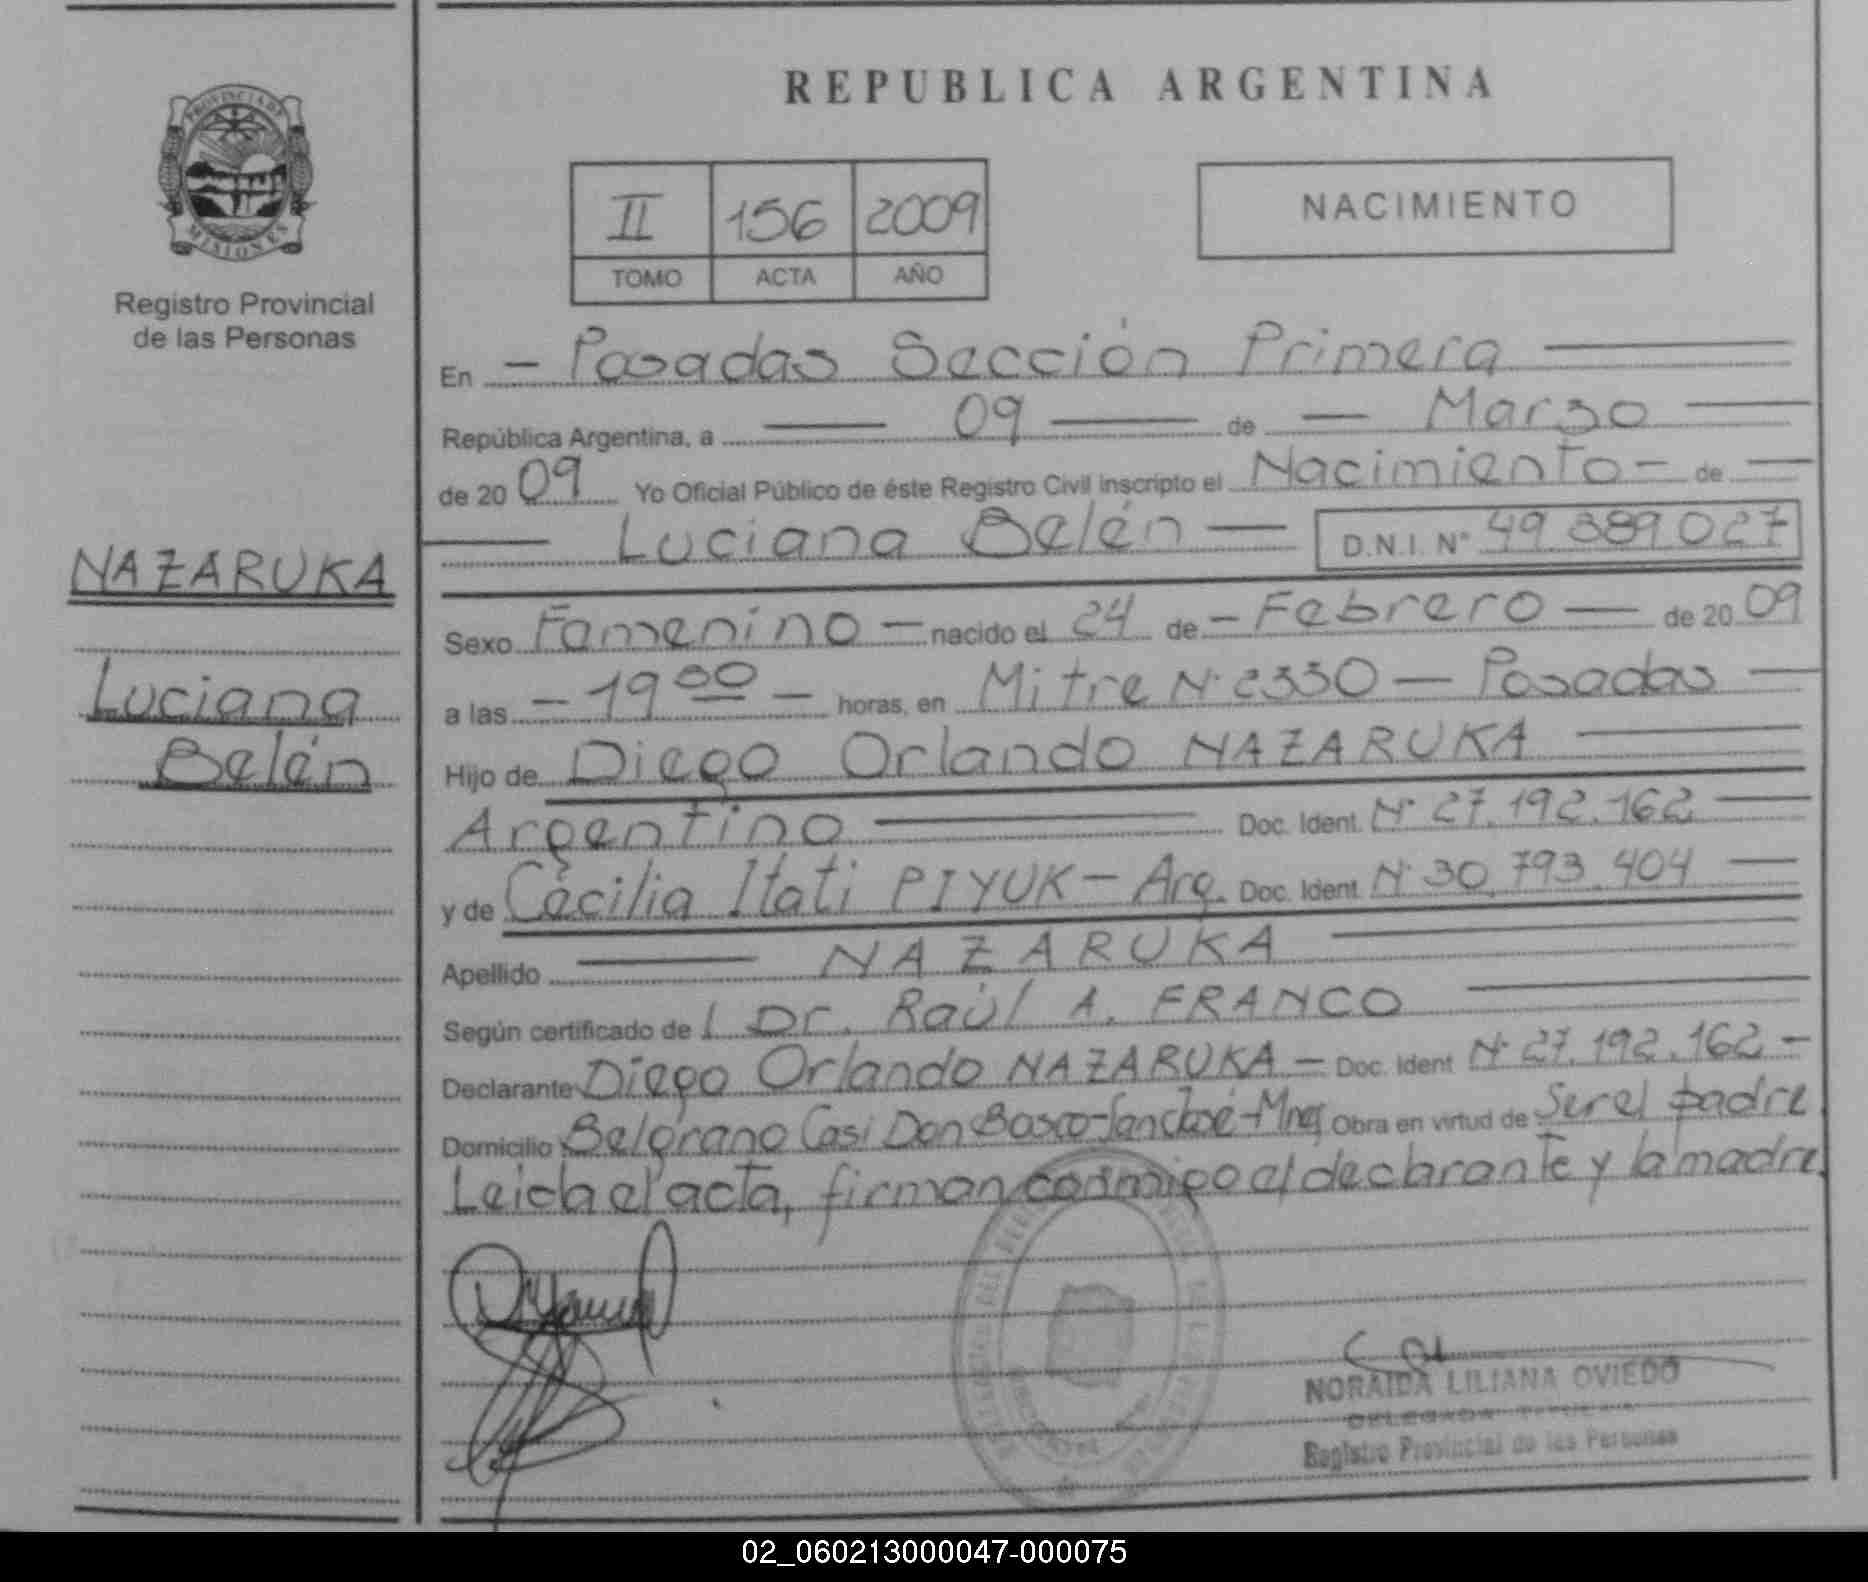 REPUBLICA ARGENTINA
PROVINCIA DE
MISIONES
Registro Provincial
de las Personas
II 156 2009
TOMO ACTA AÑO
NACIMIENTO
En - Posadas Sección Primera
República Argentina, a 09 de - Marzo
de 2009 Yo Oficial Público de éste Registro Civil inscripto el Nacimiento - de
Luciana Belén - D.N.I. N° 49.389.027
NAZARUKA
Luciana
Belén
Sexo Femenino - nacido el 24 de - Febrero - de 2009
a las - 19 00 - horas, en Mitre N° 2330 - Posadas
Hijo de Diego Orlando NAZARUKA
Argentino Doc. Ident. N° 27.192.162
y de Cecilia Itati PIYUK - Arg. Doc. Ident. N° 30.793.404
Apellido NAZARUKA
Según certificado de l Dr. Raúl A. FRANCO
Declarante Diego Orlando NAZARUKA - Doc. Ident N° 27.192.162 -
Domicilio Belgrano Casi Don Bosco - San José - Mnes Obra en virtud de Ser el padre
Leida el acta, firman conmigo el declarante y la madre.
NORAIDA LILIANA OVIEDO
DELEGADA TITULAR
Registro Provincial de las Personas
02_060213000047-000075